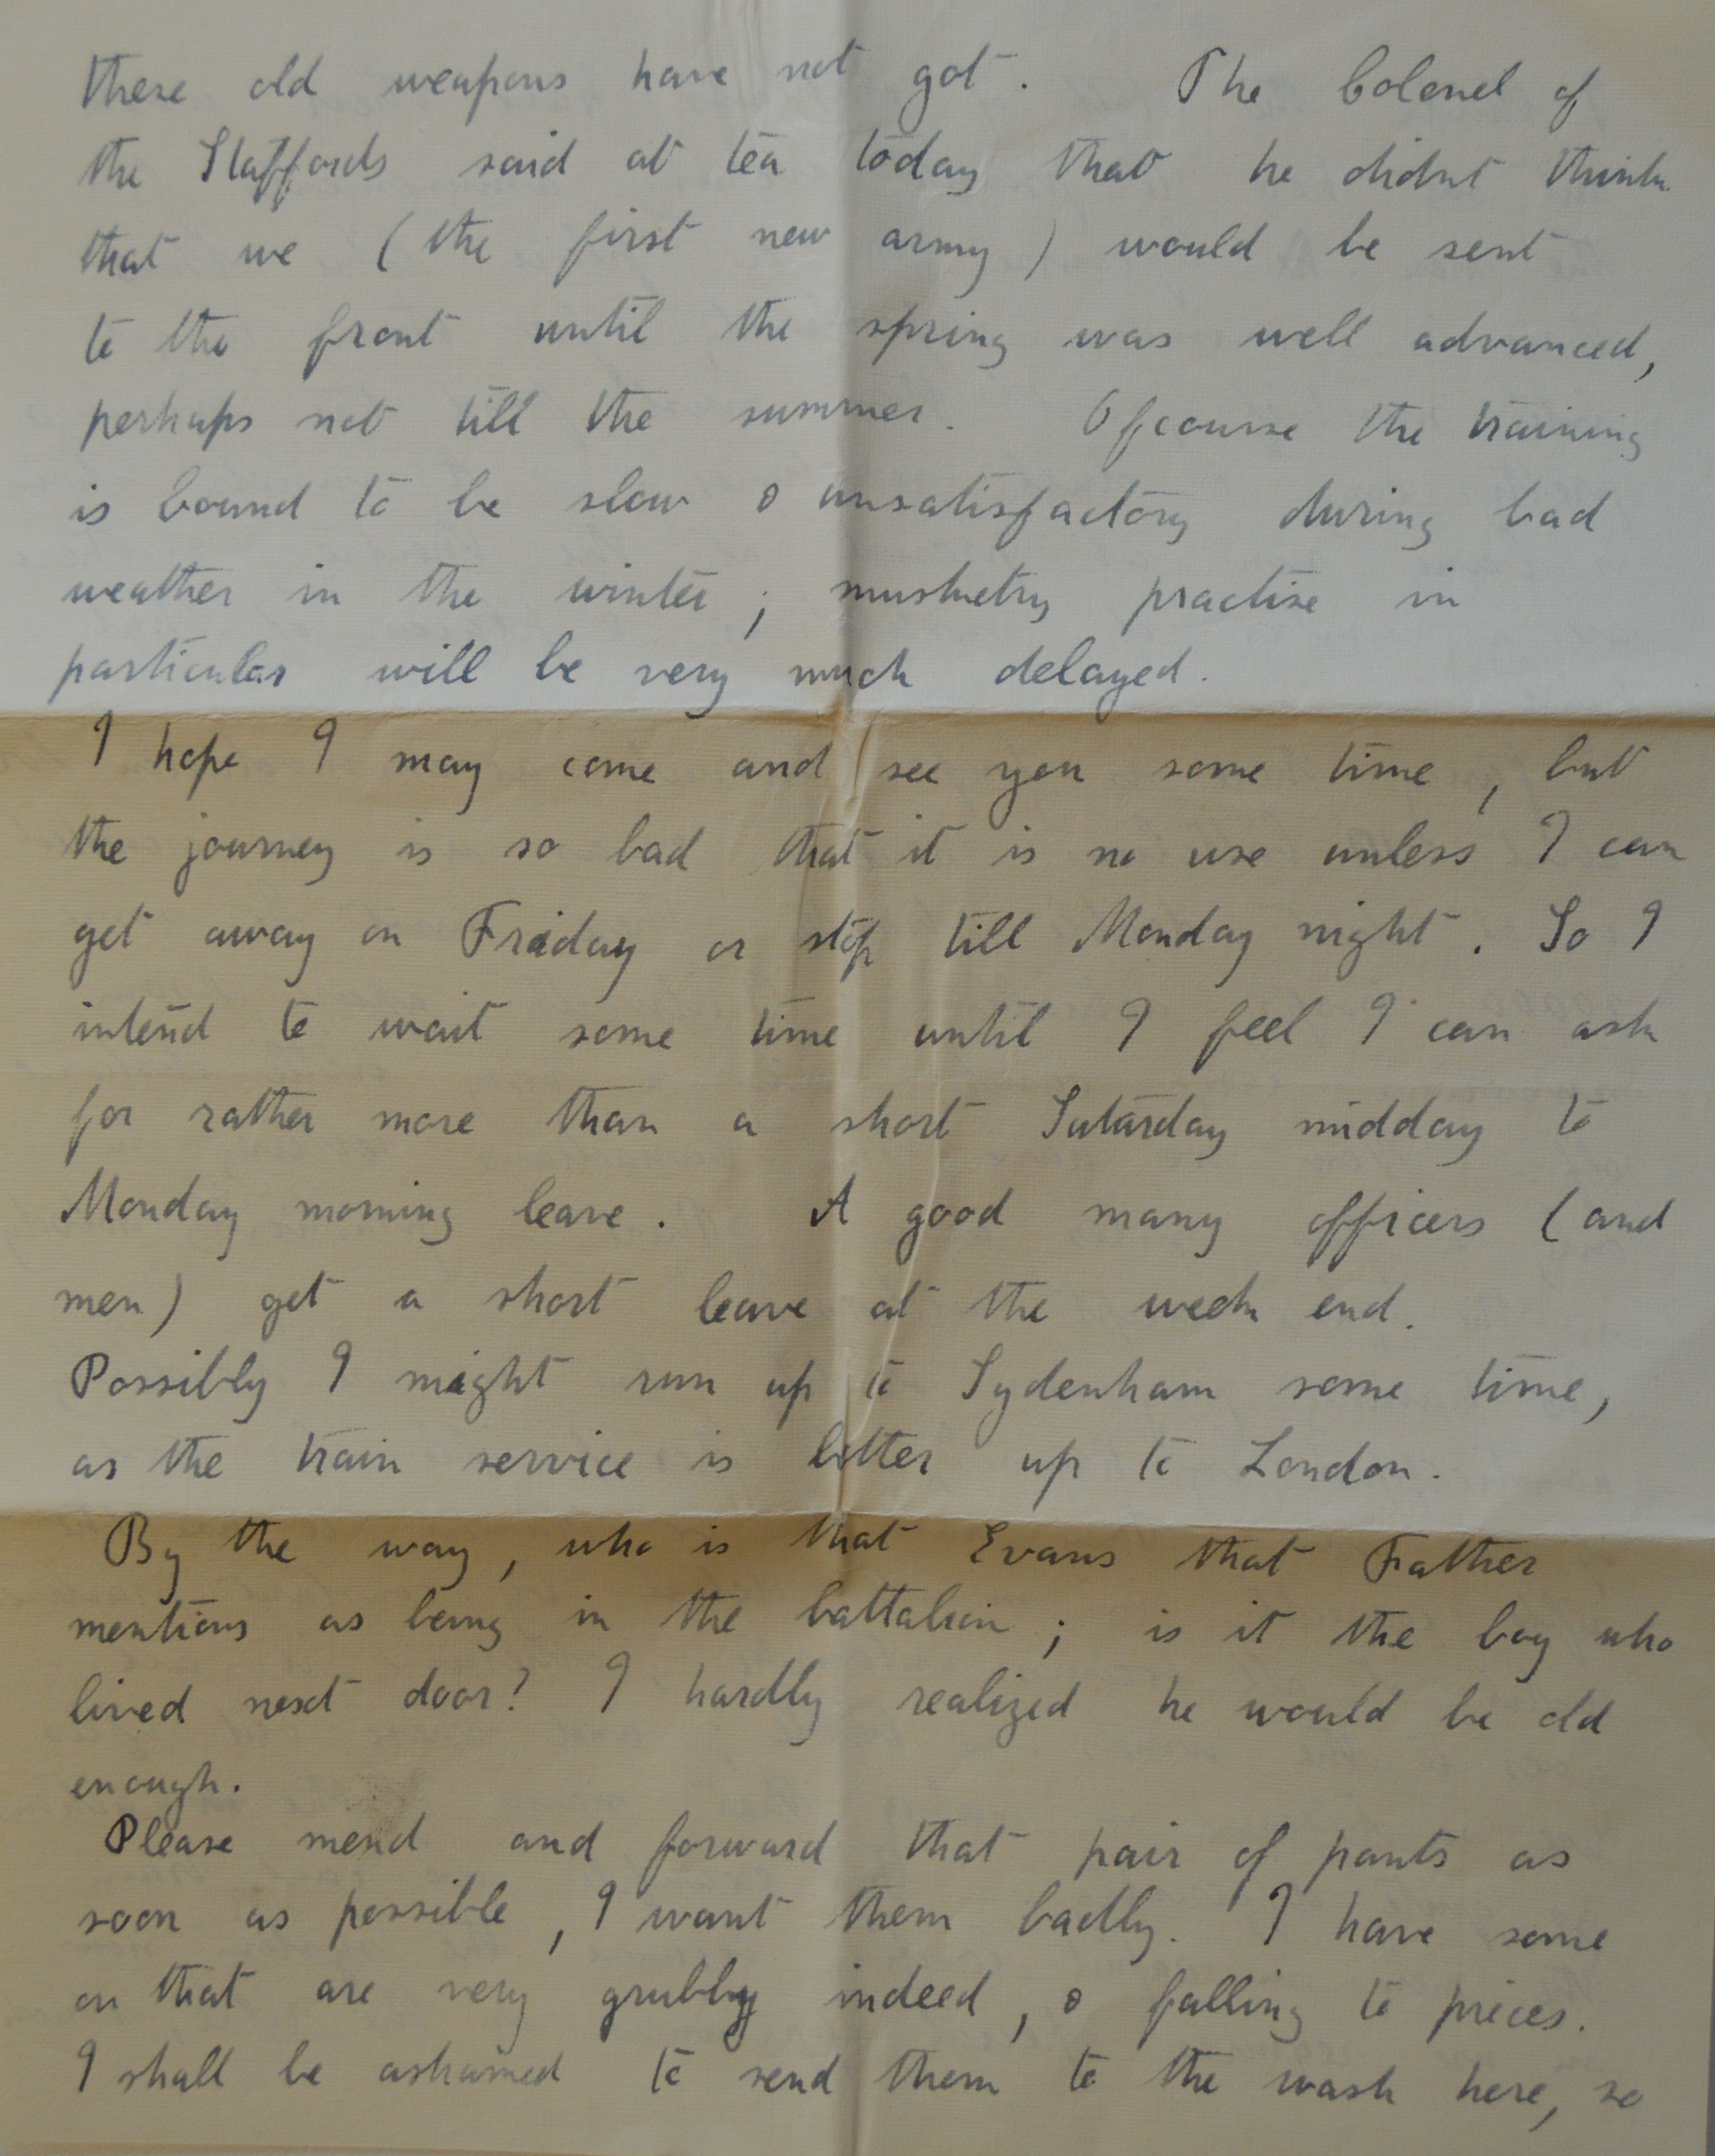 these old weapons have not got. The Colonel of
the Staffords said at tea today that he didnt think
that we (the first new army) would be sent
to the front until the spring was well advanced,
perhaps not till the summer. Ofcourse the training
is bound to be slow & unsatisfactory during bad
weather in the winter; musketry practise in
particular will be very much delayed.
I hope I may come and see you some time, but
the journey is so bad that it is no use unless I can
get away on Friday or stop till Monday night. So I
intend to wait some time until I feel I can ask
for rather more than a short Saturday midday to
Monday morning leave. A good many officers (and
men) get a short leave at the week end.
Possibly I might run up to Sydenham some time,
as the train service is better up to London.
By the way, who is that Evans that Father
mentions as being in the battalion; is it the boy who
lived next door? I hardly realized he would be old
enough.
Please mend and forward that pair of pants as
soon as possible, I want them badly. I have some
on that are very grubby indeed, & falling to pieces.
I shall be ashamed to send them to the wash here, so